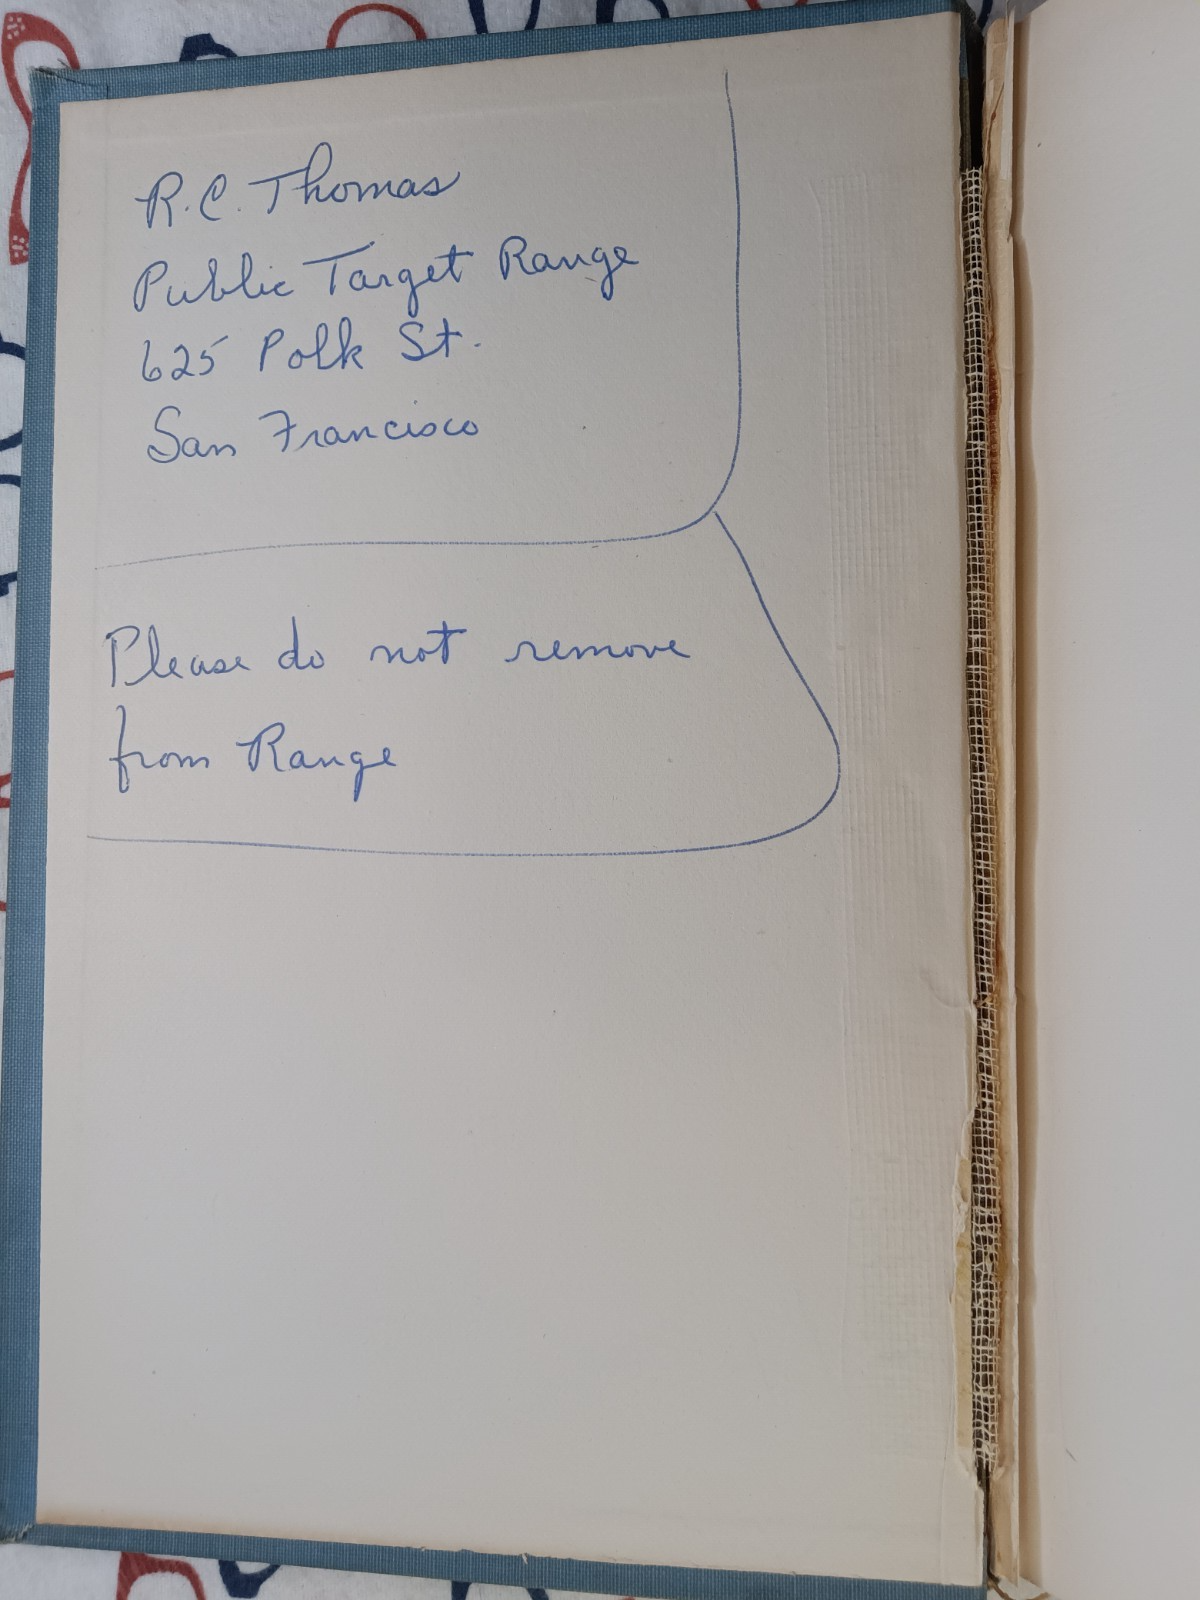 R.C. Thomas
Public Target Range
625 Polk St.
San Francisco
Please do not remove
from Range